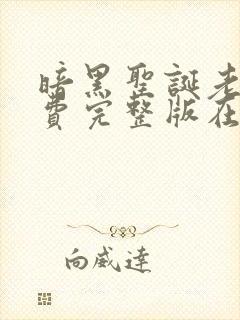 暗黑聖誕老
費完整版在
向威達